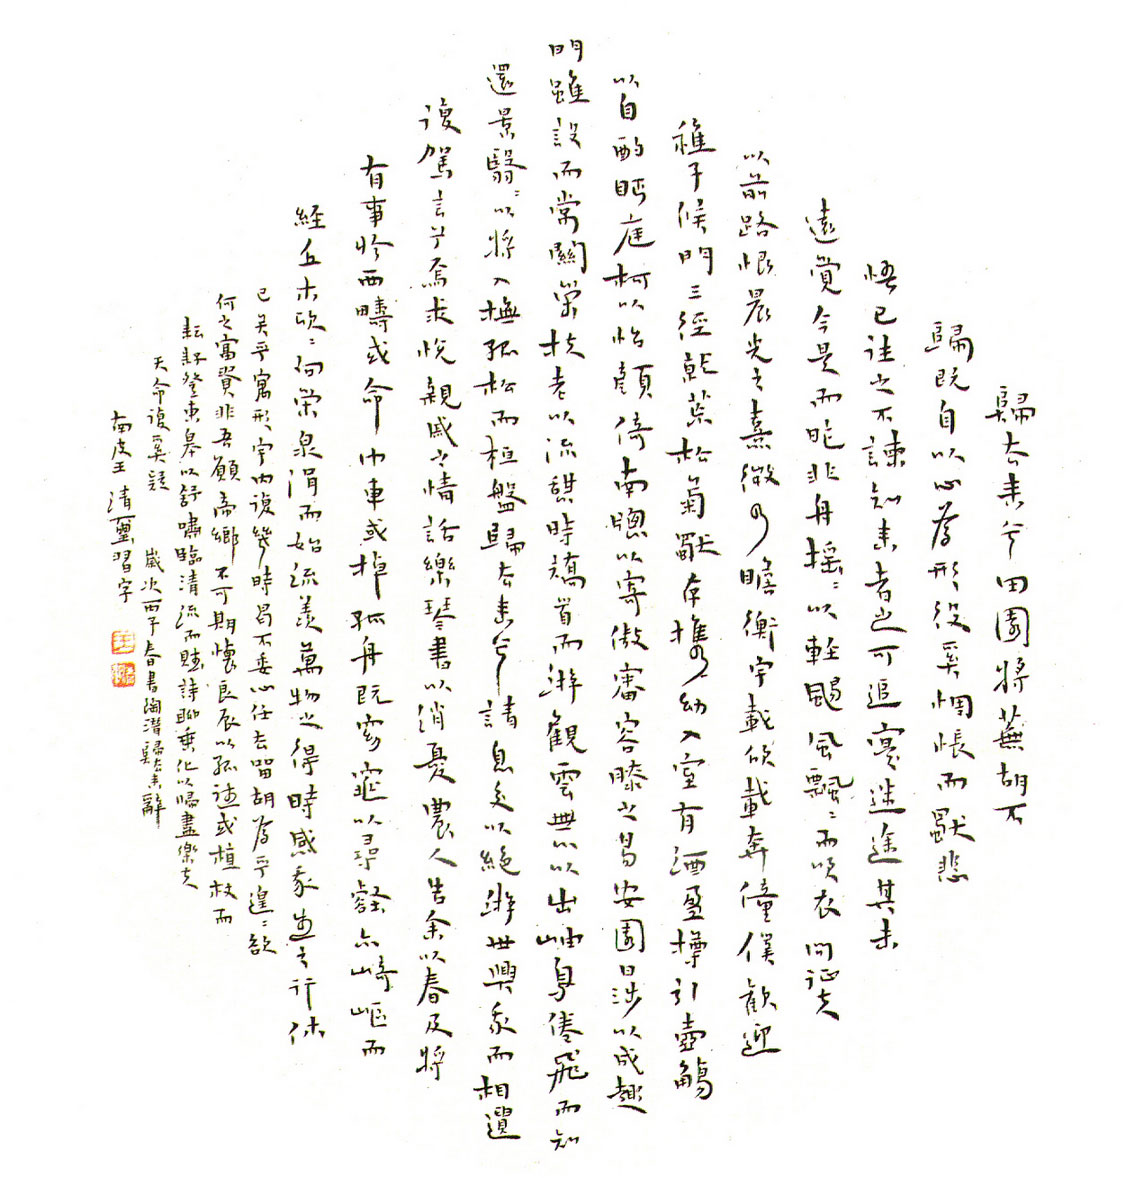 歸去來兮田園將蕪胡不
歸既自以心為形役奚惆悵而獨悲
悟已往之不諫知來者之可追寔迷途其未
遠覺今是而昨非舟搖〻以輕颺風飄〻而吹衣問征夫
以前路恨晨光之熹微乃瞻衡宇載欣載奔僮僕歡迎
稚子候門三徑就荒松菊猷存攜幼入室有酒盈樽引壺觴
以自酌眄庭柯以怡顏倚南牕以寄傲審容膝之易安園日涉以成趣
門雖設而常關策扶老以流憩時矯首而遊觀雲無心以出岫鳥倦飛而知
還景翳〻以將入撫孤松而桓盤歸去來兮請息交以絕遊世與我而相遺
復駕言兮焉求悅親戚之情話樂琴書以消憂農人告余以春及將
有事於西疇或命巾車或棹孤舟既窈窕以尋壑亦崎嶇而
經丘木欣〻向榮泉涓而始流羨萬物之得時感我生之行休
已矣乎寓形宇內復幾時曷不委心任去留胡為乎遑〻欲
何之富貴非吾願帝鄉不可期懷良辰以孤往或植杖而
耘耔登東皋以舒嘯臨清流而賦詩聊乘化以歸盡樂夫
天命復奚疑 歲次丙子春書陶潛歸去來辭
南皮王清璽習字